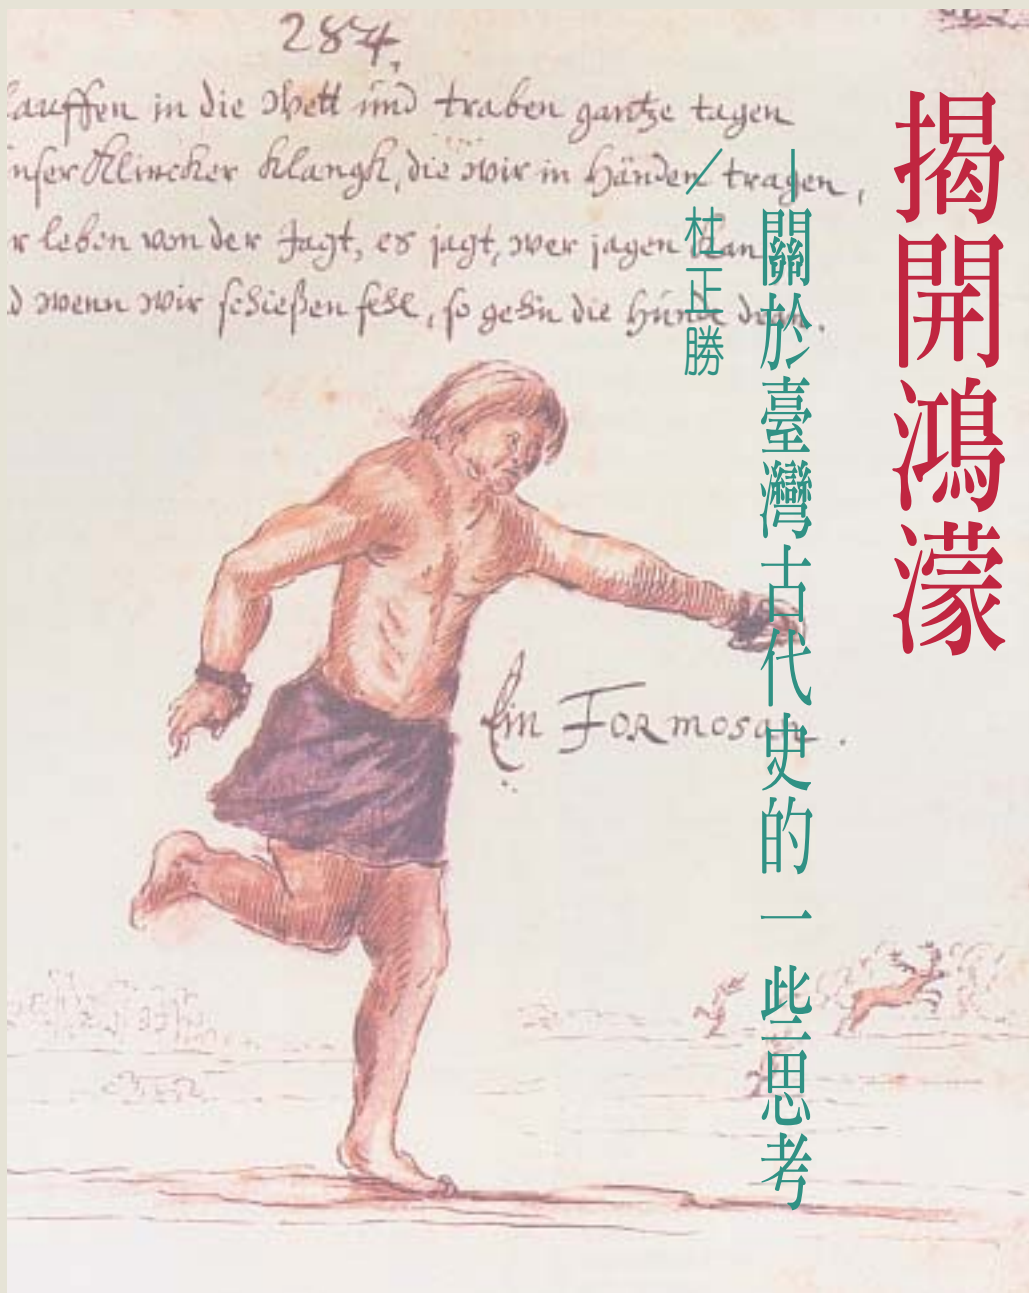 揭開鴻濛
—關於臺灣古代史的一些思考
／杜正勝
284,
lauffen in die Welt und traben gantze tagen
nser Klincker Klangk, die wir in Händen tragen,
r leben von der Jagt, es jagt, wer jagen kan
d wenn wir schießen fehl, so gehn die Hünde dran.
Ein FORmosan.